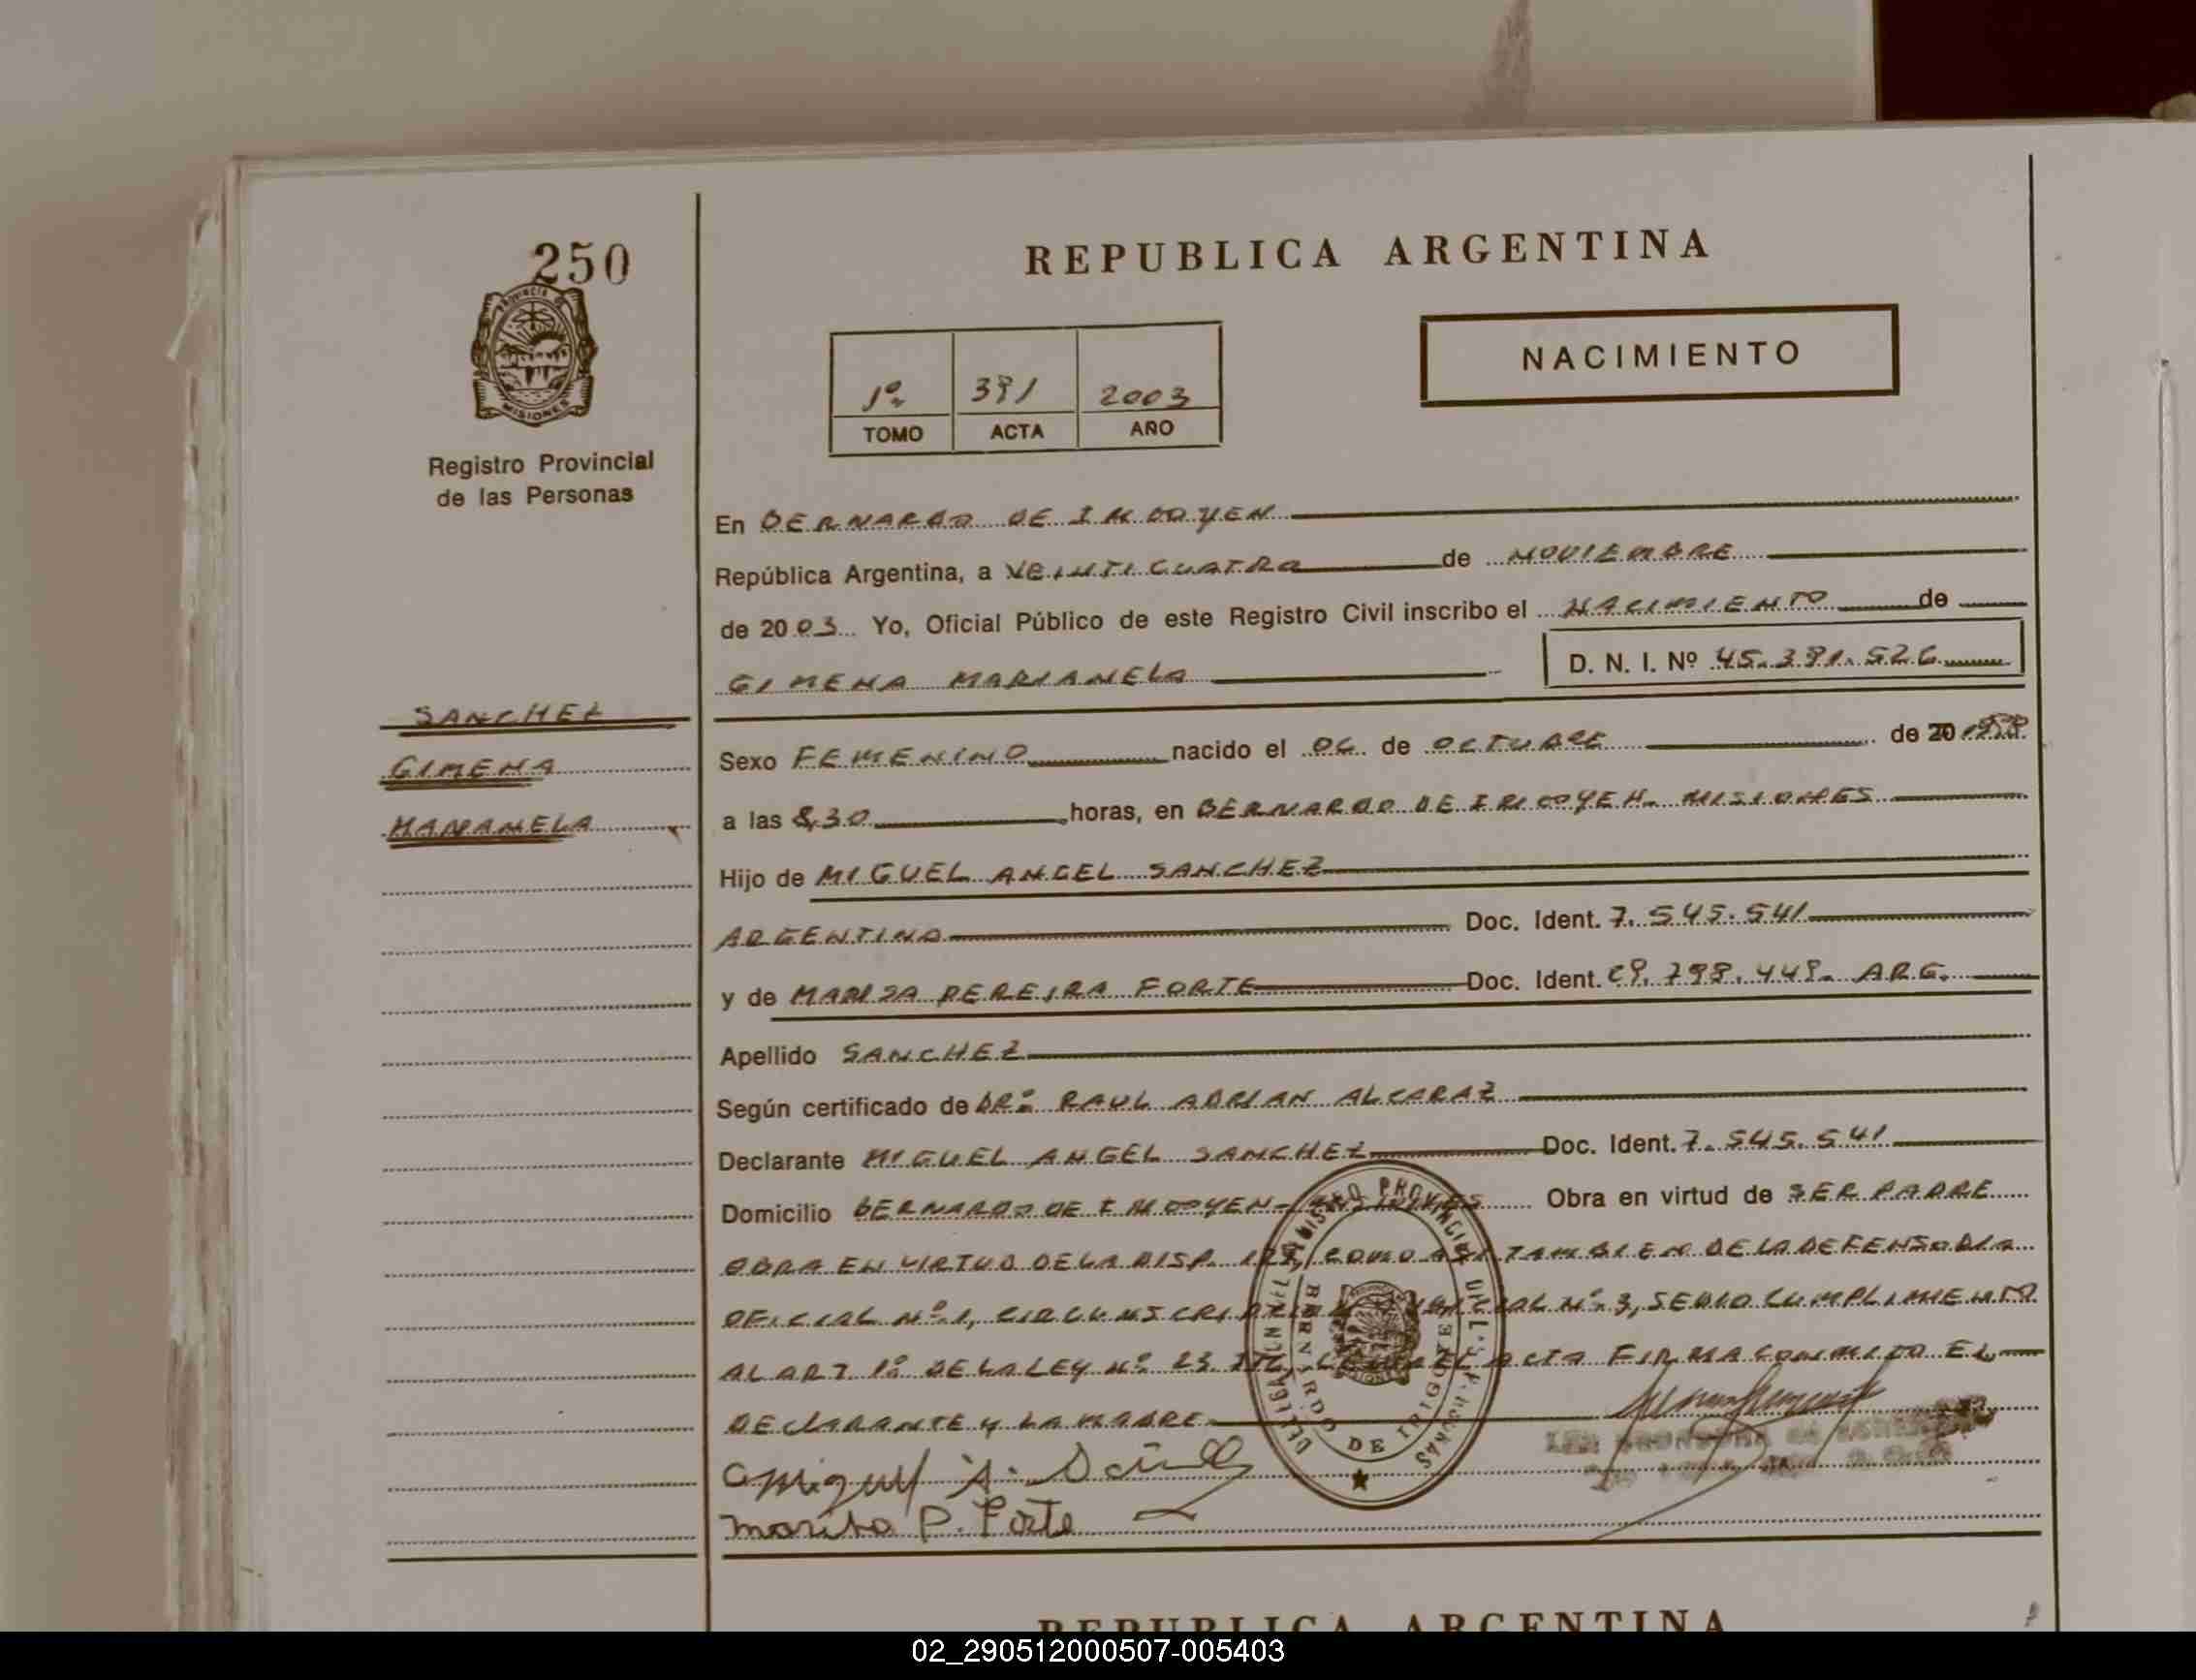 250
PROVINCIA DE
MISIONES
Registro Provincial
de las Personas
REPUBLICA ARGENTINA
NACIMIENTO
1º 391 2003
TOMO ACTA AÑO
En BERNARDO DE IRIGOYEN
República Argentina, a VEINTICUATRO de NOVIEMBRE
de 2003 Yo, Oficial Público de este Registro Civil inscribo el NACIMIENTO de
GIMENA MARIANELA D. N. I. Nº 45.391.526
SANCHEZ
GIMENA
MARIANELA
Sexo FEMENINO nacido el 06 de OCTUBRE de 20
a las 8,30 horas, en BERNARDO DE IRIGOYEN. MISIONES
Hijo de MIGUEL ANGEL SANCHEZ
ARGENTINO Doc. Ident. 7.545.541
y de MARISA PEREIRA FORTE Doc. Ident. ARG.
Apellido SANCHEZ
Según certificado de DR: RAUL ADRIAN ALCARAZ
Declarante MIGUEL ANGEL SANCHEZ Doc. Ident. 7.545.541
Domicilio BERNARDO DE IRIGOYEN - MISIONES Obra en virtud de SER PADRE
OBRA EN VIRTUD DE LA DISP. COMO ASI TAMBIEN DE LA DEFENSORIA
OFICIAL Nº 1, CIRCUNSCRIPCION JUDICIAL Nº 3, SEDIO CUMPLIMIENTO
AL ART 1º DE LA LEY Nº 23. ACTA FIRMA CONMIGO EL
DECLARANTE Y LA MADRE
Miguel A.
P. Forte
REGISTRO PROVINCIAL DE L.S P.RSONAS
DELEGACION
BERNARDO DE IRIGOYEN
REPUBLICA ARGENTINA
02_290512000507-005403